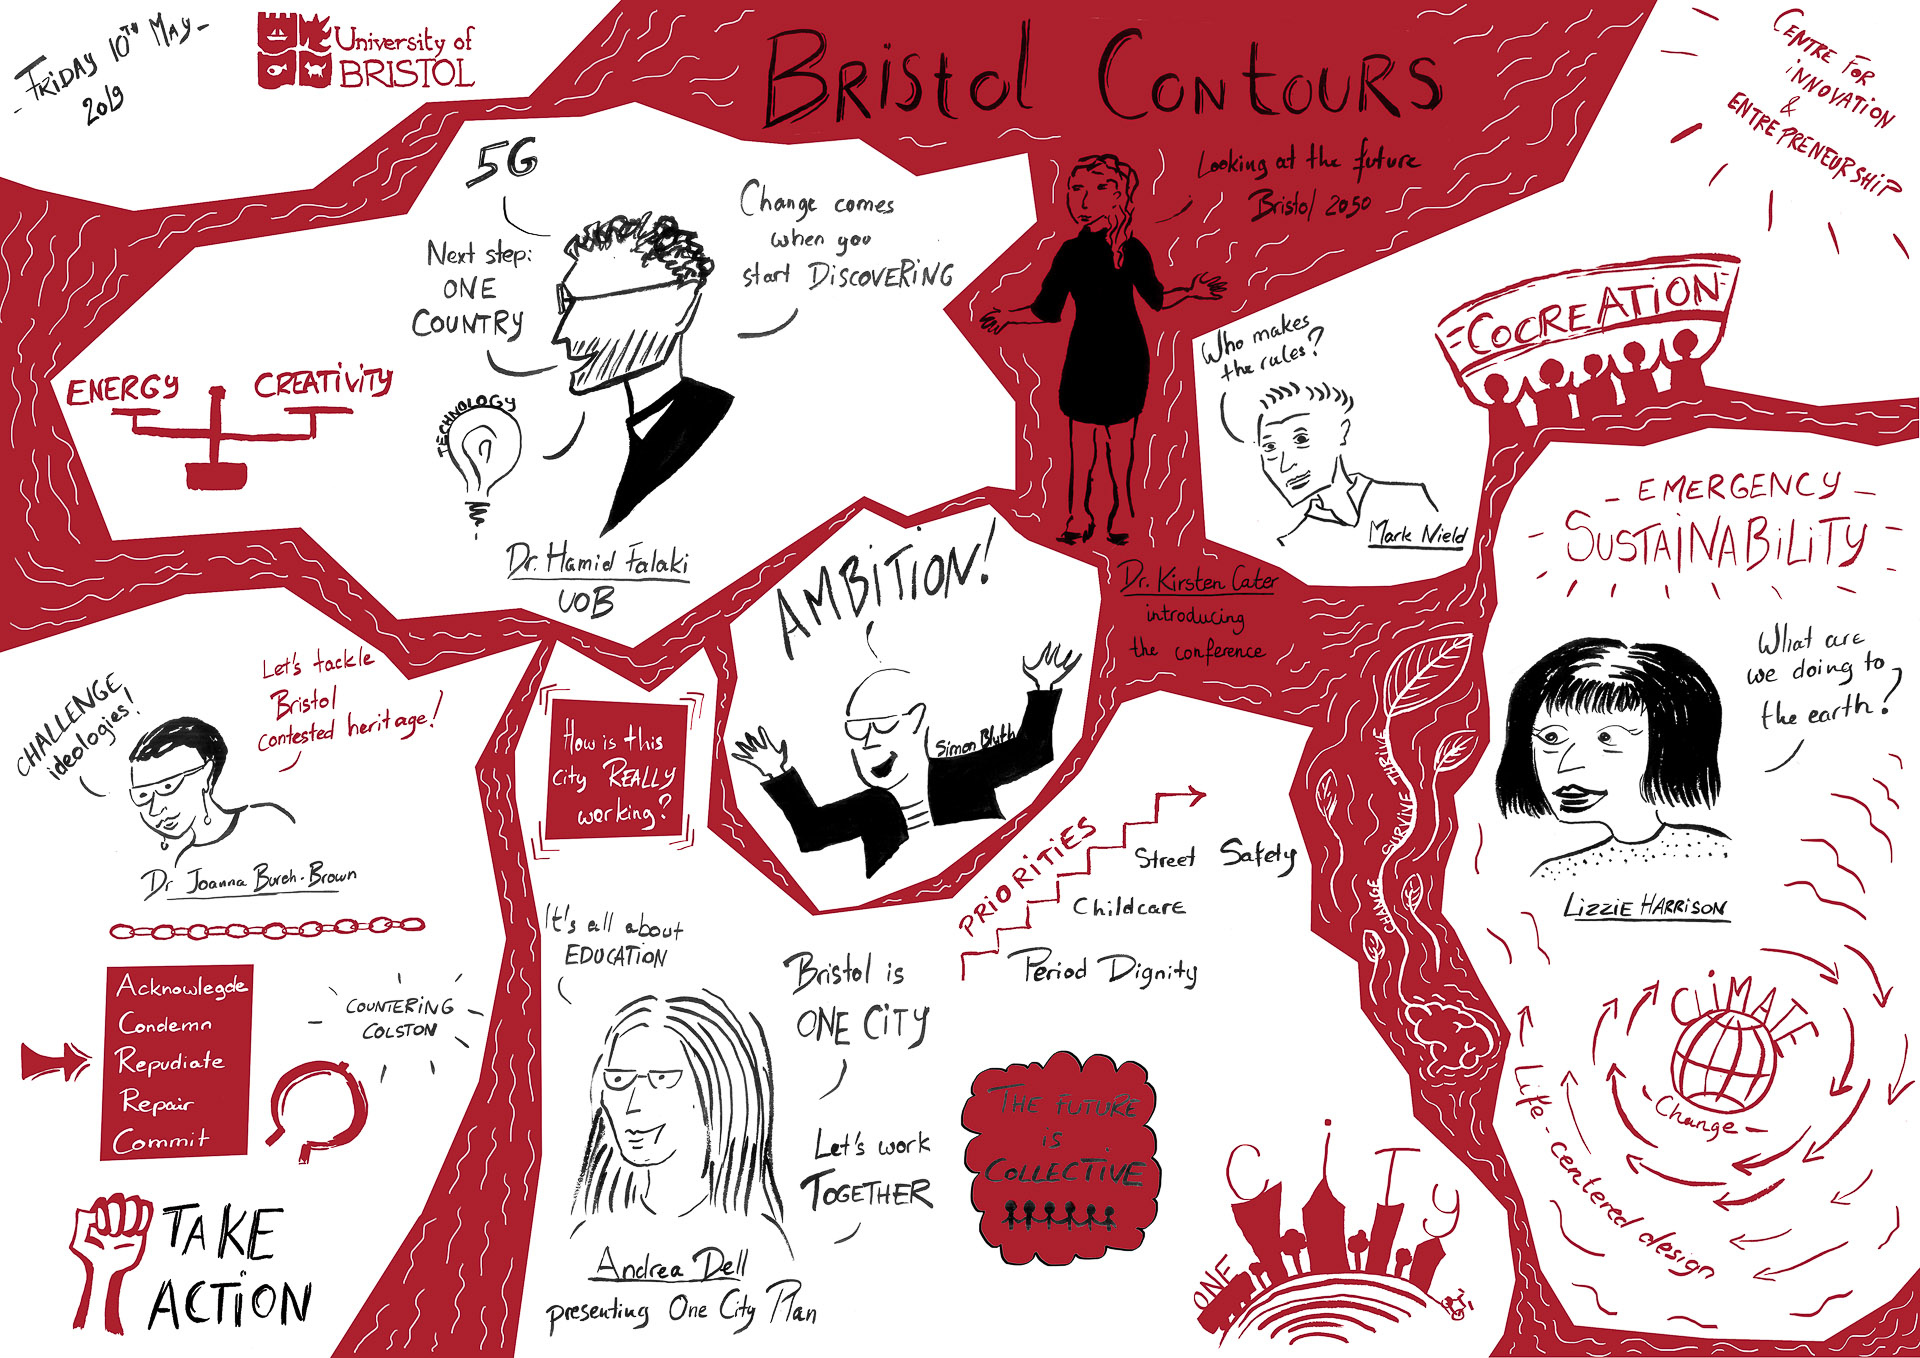 - FRIDAY 10TH MAY -
2019
University of
BRISTOL
BRistol CONtOURS
Looking at the future
Bristol 2050
CENTRE FOR
iNNOVATiON
&
ENTREPRENEURSHiP
5G
Next step:
ONE
COUNTRY
Change comes
when you
start DISCOVERiNG
ENERGY
CREATiViTY
TECHNOLOGY
Dr. Hamid Falaki
UOB
Who makes
the rules?
Mark Nield
COCREATiON
Dr. Kirsten Cater
introducing
the conference
- EMERGENCY -
SUSTAiNABiLiTY
What are
we doing to
the earth?
LIZZIE HARRISON
CHALLENGE
ideologies!
Let's tackle
Bristol
contested heritage!
Dr Joanna Burch-Brown
Acknowlegde
Condemn
Repudiate
Repair
Commit
COUNTERiNG
COLSTON
TAKE
ACTiON
How is this
city REALLY
working?
AMBiTiON!
Simon Blyth
PRiORiTiES
Street Safety
Childcare
Period Dignity
It's all about
EDUCATiON
Bristol is
ONE CiTY
Let's work
TOGETHER
Andrea Dell
presenting One City Plan
THE FUTURE
is
COLLECTIVE
ONE
CiTy
CHANGE SURVIVE THRIVE
CLiMATE
- Change -
Life-centered design